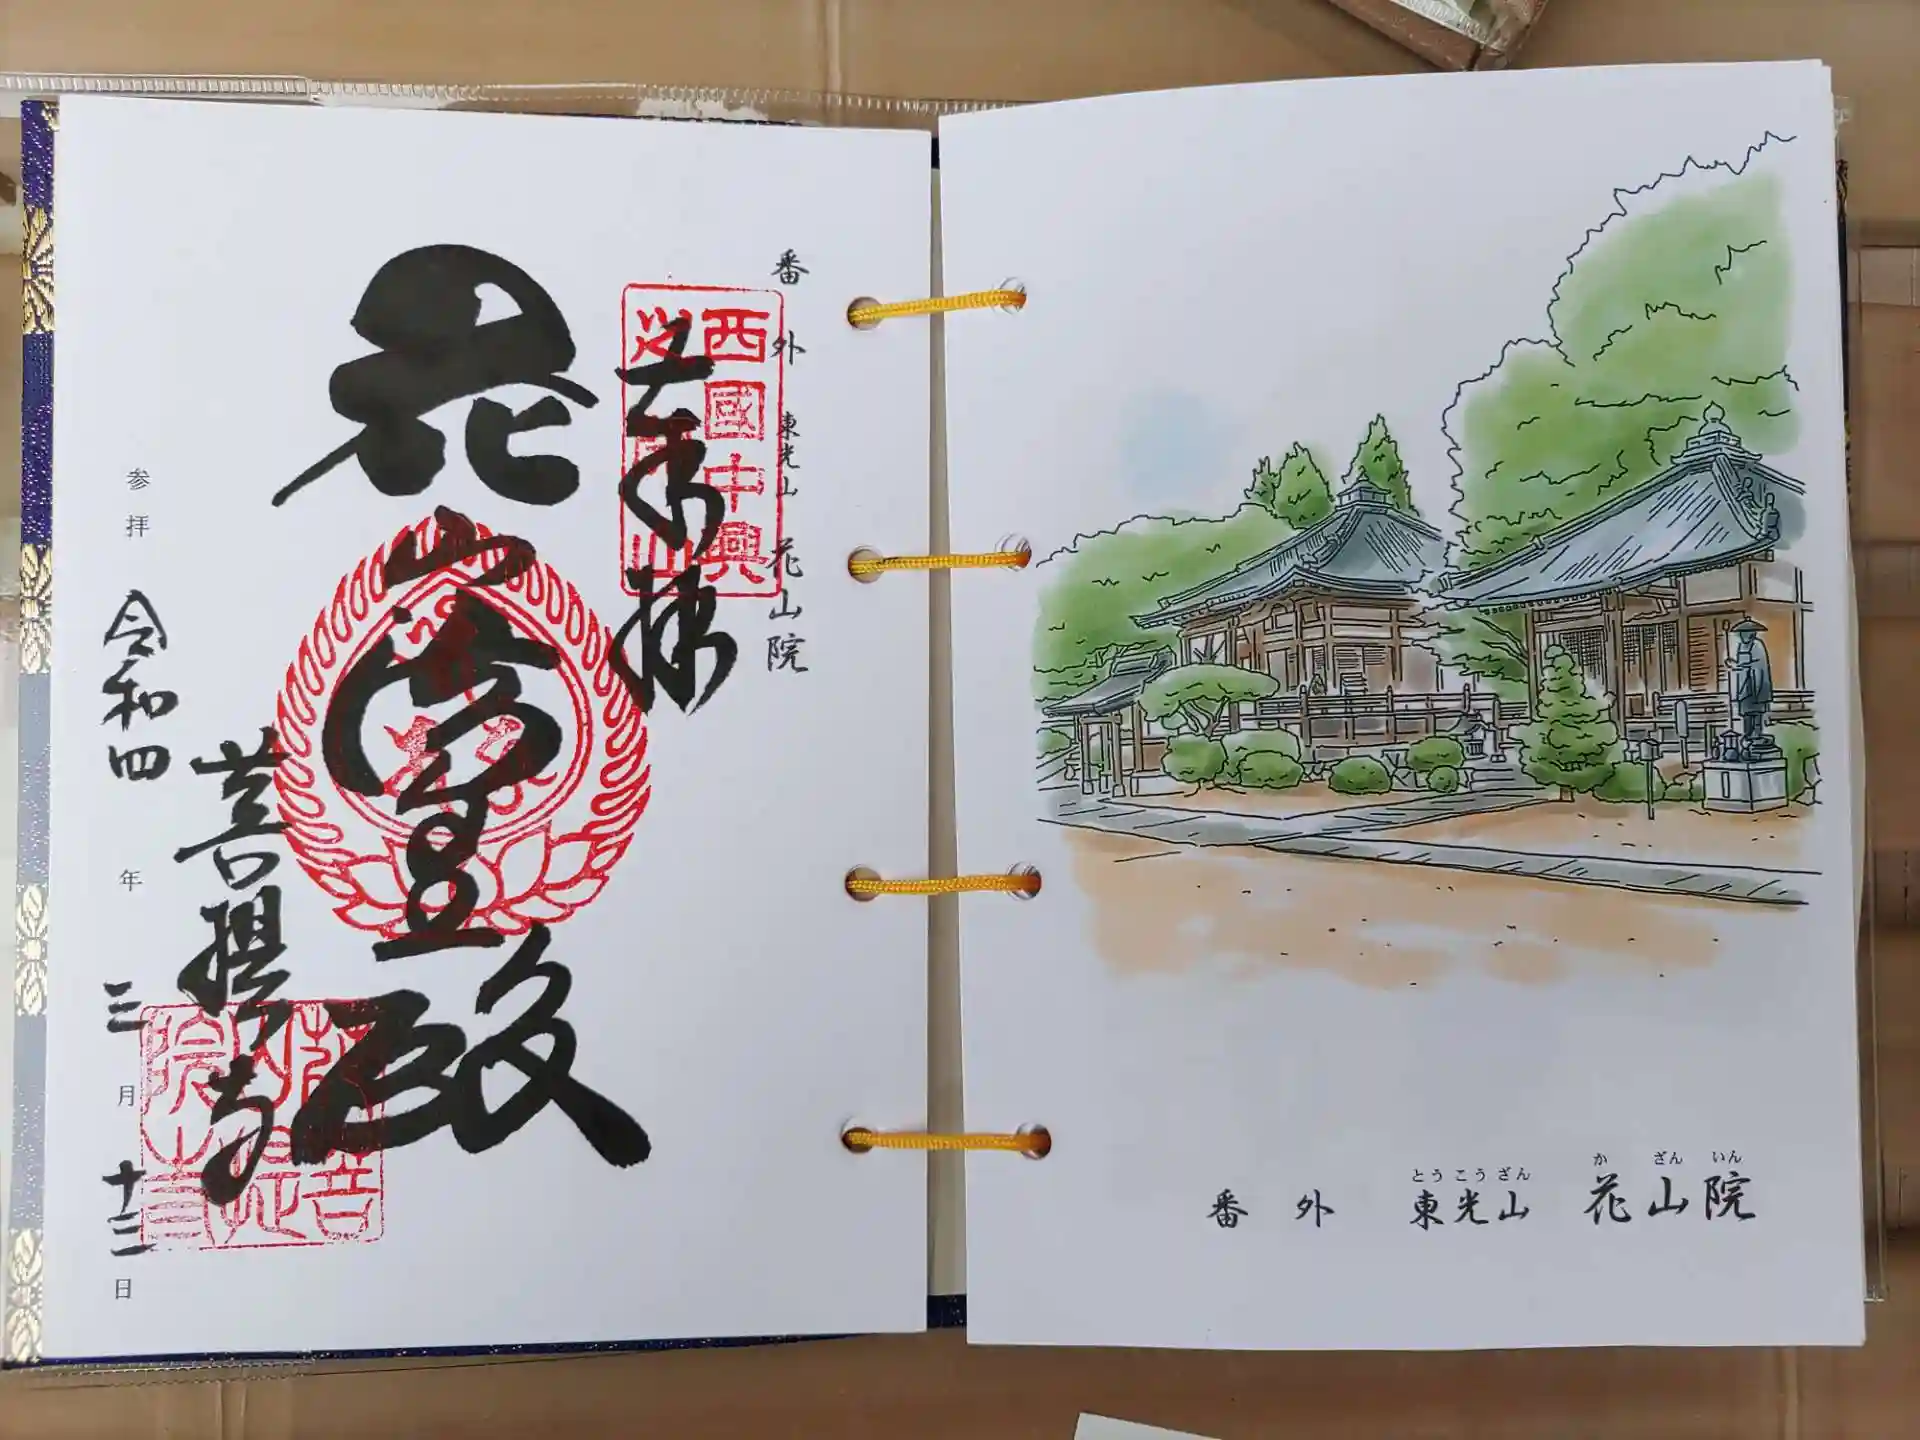 番外 東光山 花山院
奉拝
西國中興
花山
寳殿
菩提寺
参拝 令和四年三月十二日
とうこうざん かざんいん
番外 東光山 花山院